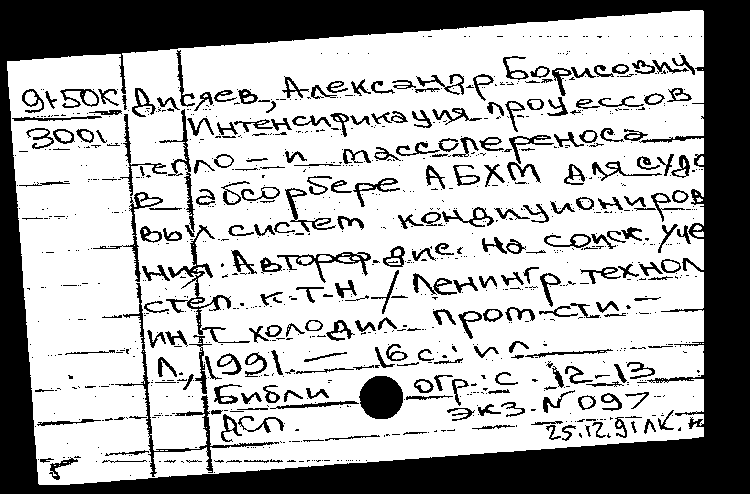 9t50K Дисяев, Александр Борисович
3001 Интенсификация процессов
тепло- и массопереноса
в абсорбере АБХМ для судо
вых систем кондициониров
ния: Автореф. дис. на соиск. уче
степ. к.т.н / Ленингр. технол
ин-т холодил. пром-сти. –
Л., 1991. – 16 с.: ил.
Библиогр.: с. 12-13
ДСП. экз. N 097
25.12.91 ЛК.